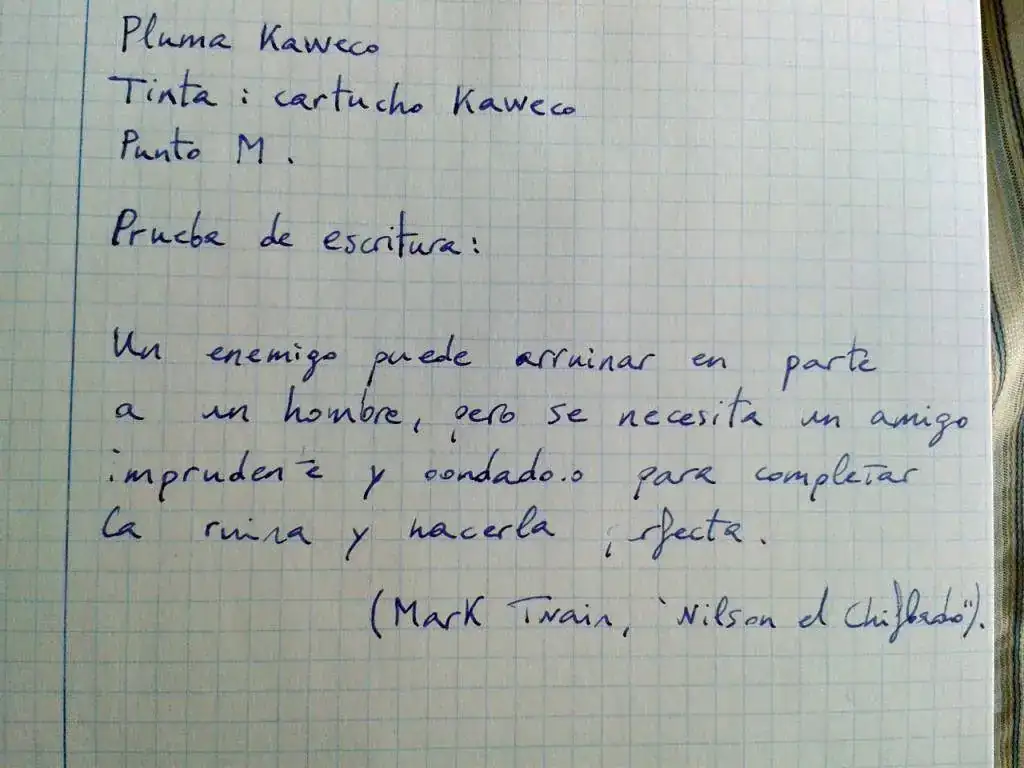 Pluma Kaweco
Tinta : cartucho Kaweco
Punto M.
Prueba de escritura:
Un enemigo puede arruinar en parte
a un hombre, pero se necesita un amigo
imprudente y bondadoso para completar
la ruina y hacerla perfecta.
(Mark Twain, "Wilson el Chiflado").